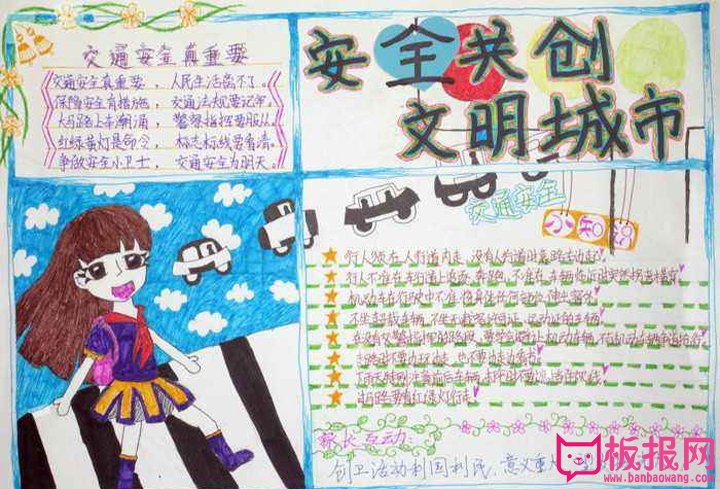 交通安全真重要
交通安全真重要，人民生活离不了。
保障安全有措施，交通法规要记牢。
大马路上车潮涌，警察指挥要服从。
红绿黄灯是命令，标志标线要看清。
争做安全小卫士，交通安全为明天。
安全共创
文明城市
交通安全
小知识
行人须在人行道内走，没有人行道时靠路右边走
行人不准在车行道上追逐、奔跑，不准在车辆临近时突然
机动车在行驶中不准
不坐超载车辆，不坐无载客许可证、运动证的车辆
走路时不要边玩边走，也不要边走边看书
过马路要看红绿灯行走
家长互动：
创卫活动利国利民，意义重大
板报网
www.banbaowang.com